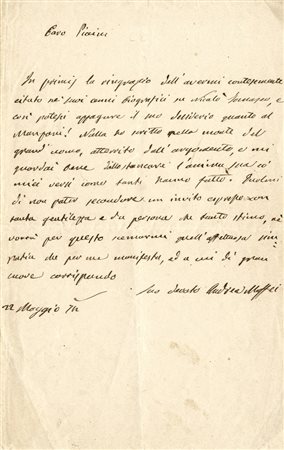 Caro Picini
In primis la ringrazio dell'avermi cortesemente
citato ne' suoi cenni biografici su Nicolò Tommaseo, e
così potessi appagare il suo desiderio quanto al
Manzoni! Nulla ho scritto nella morte del
grand'uomo, atterrito dall'argomento, e mi
guardai bene dallo stancare l'anima sua co'
miei versi come tanti hanno fatto. Duolmi
di non poter secondare un invito espresso con
tanta gentilezza e da persona che tanto stimo, nè
vorrà per questo scemarmi quell'affettuosa sim
patia che per me manifesta, ed a cui di gran
cuore corrispondo
Suo devoto Andrea Maffei
22 Maggio 74